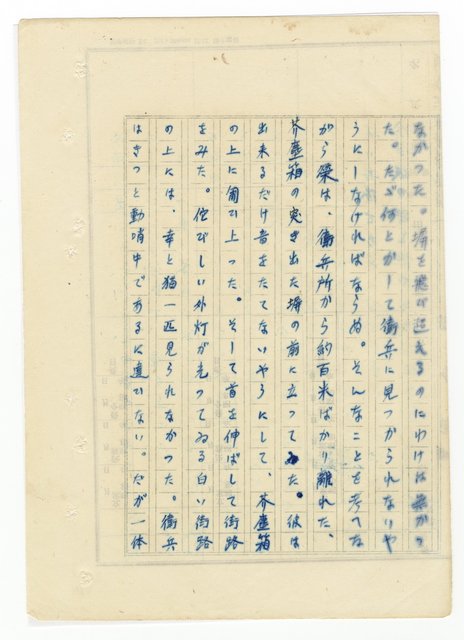 なかつた。塀を飛び越えるのにわけは無かつ
た。たゞ何とかして衛兵に見つかられないや
うにしなければならぬ。そんなことを考へな
がら榮は、衛兵所から約百米ばかり離れた、
芥塵箱の突き出た塀の前に立つてゐた。彼は
出来るだけ音をたてないやうにして、芥塵箱
の上に匍ひ上つた。そして首を伸ばして街路
をみた。侘びしい外灯が光つてゐる白い街路
の上には、幸と猫一匹見られなかつた。衛兵
はきつと動哨中であるに違ひない。だが一体